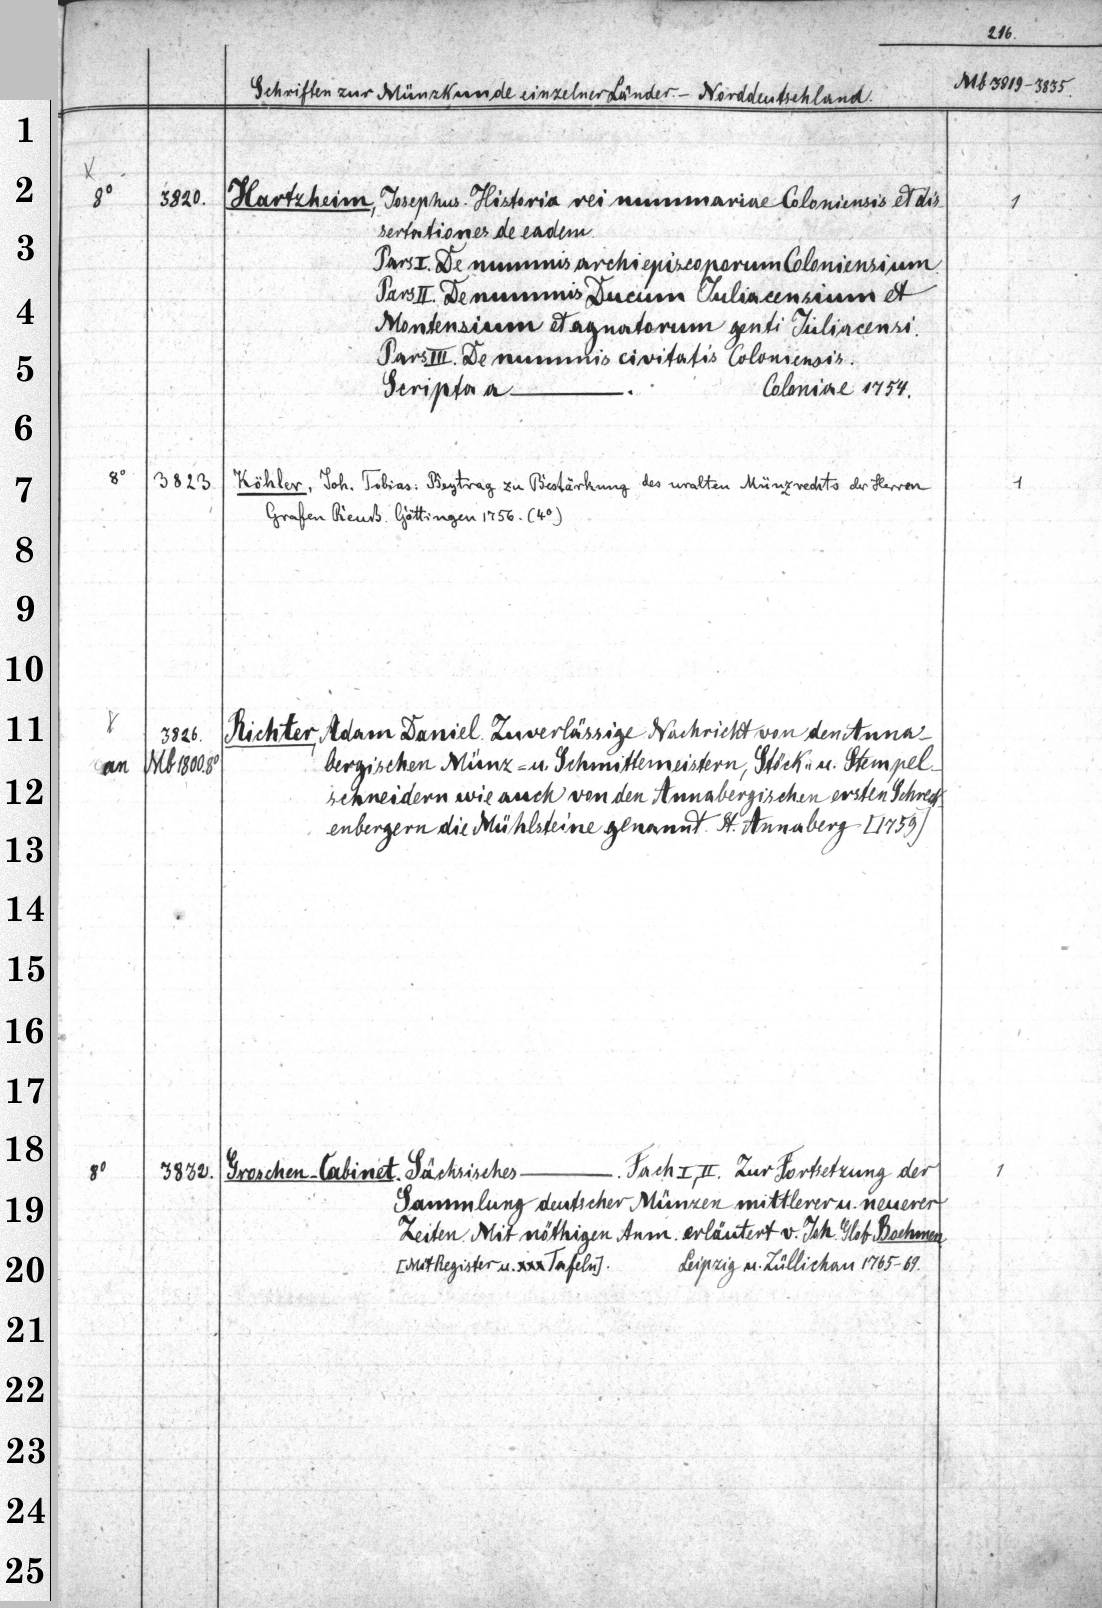 216.
Schriften zur Münzkunde einzelner Länder. – Norddeutschland.
Mb 3819–3835.
1
2
3
4
5
6
7
8
9
10
11
12
13
14
15
16
17
18
19
20
21
22
23
24
25
8° 3820. Hartzheim, Josephus. Historia rei nummariae Coloniensis et dis- 1
sertationes de eadem.
Pars I. De nummis archiepiscoporum Coloniensium.
Pars II. De nummis Ducum Juliacensium et
Montensium et agnatorum genti Juliacensi.
Pars III. De nummis civitatis Coloniensis.
Scripta a ———. Coloniae 1754.
8° 3823 Köhler, Joh. Tobias: Beytrag zu Bestärkung des uralten Münzrechts der Herren 1
Grafen Reuß. Göttingen 1756. (4°)
3826. Richter, Adam Daniel. Zuverlässige Nachricht von den Anna-
an Mb 1800.8° bergischen Münz- u. Schmittemeistern, Stöck- u. Stempel-
schneidern wie auch von den Annabergischen ersten Schreck-
enbergern die Mühlsteine genannt. St. Annaberg [1759]
8° 3832. Groschen-Cabinet. Sächsisches ———. Fach I, II. Zur Fortsetzung der 1
Sammlung deutscher Münzen mittlerer u. neuerer
Zeiten. Mit nöthigen Anm. erläutert v. Joh. Glob. Boehmen
[Mit Register u. xxx Tafeln]. Leipzig u. Züllichau 1765–69.